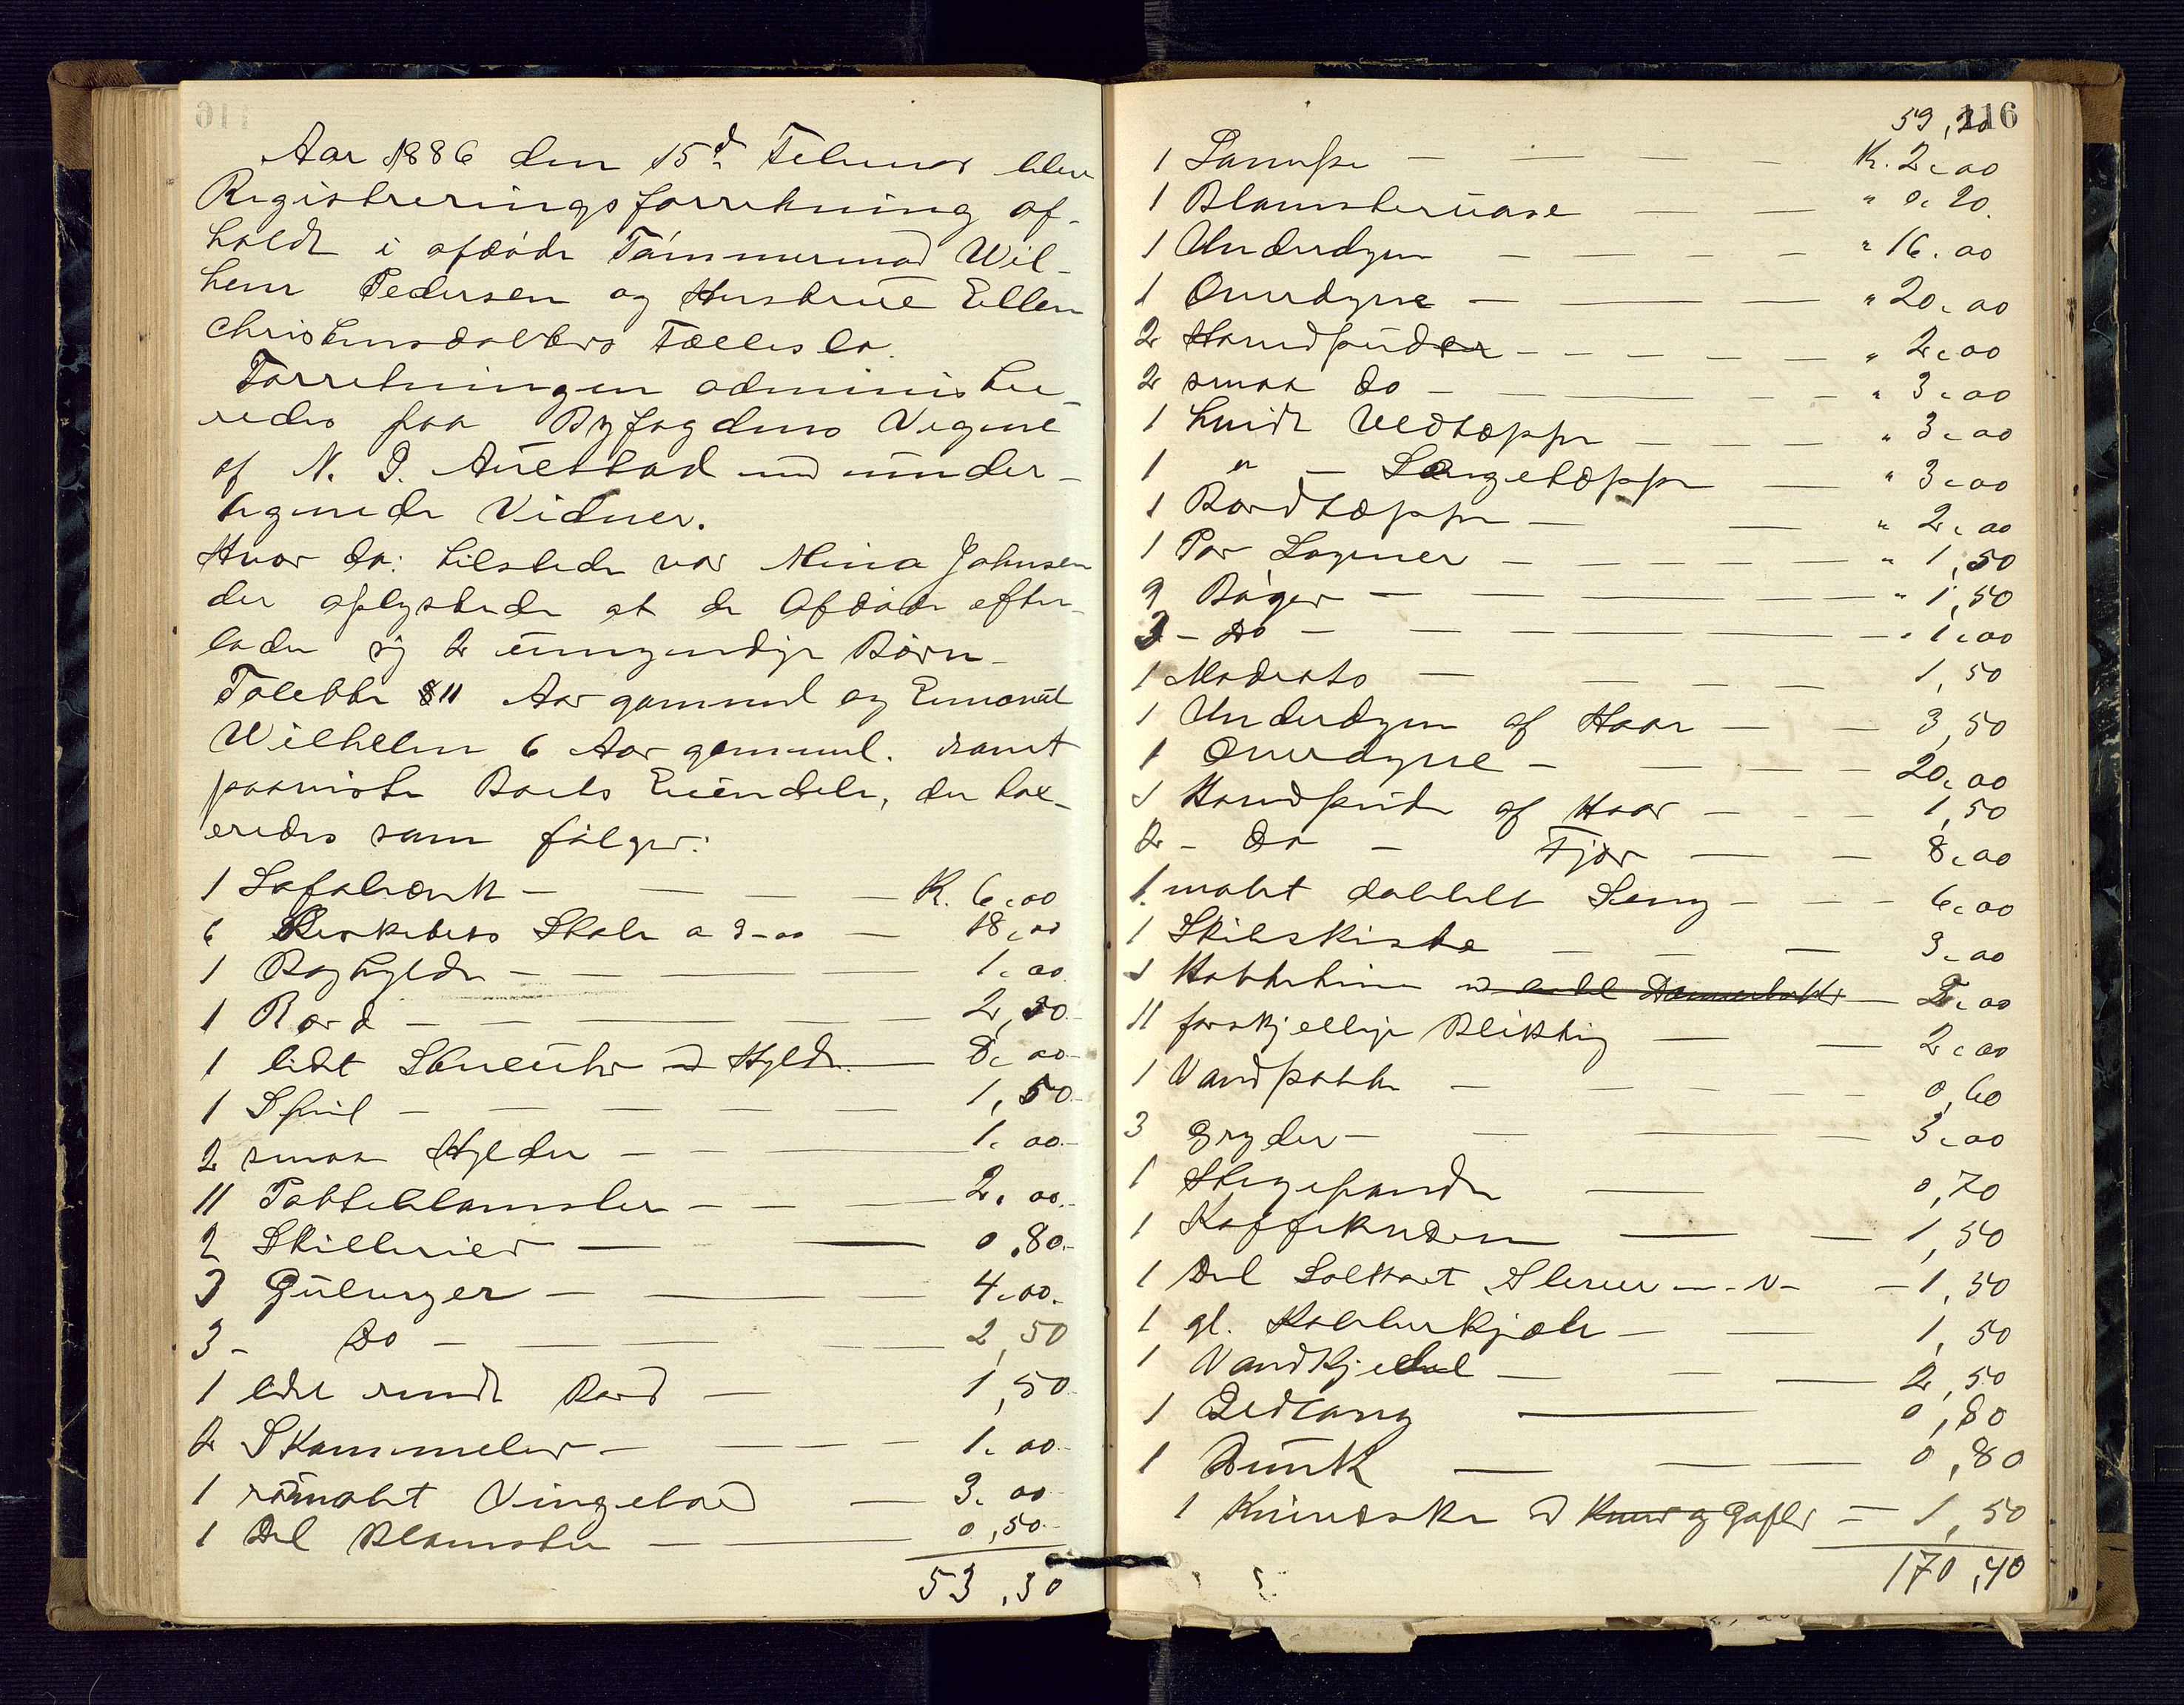 Aar 1886 den 15d Februar blev
Registreringsforretning af-
holdt i afdøde Tømmermand Wil-
helm Pedersen og Hustrue Ellen
Christensdatters Fællesbo.
Forretningen administre-
redes paa Byfogdens Vegne
af N. J. Auestad med under-
tegnede Vidner.
Hvor da: tilstede var Mina Johnsen
der oplystede at de Afdøde efter-
lader sig 2 umyndige Børn
Tolette 11 Aar gammel og Emanuel
Wilhelm 6 Aar gammel. samt
paaviste Boets Eiendele, der tax-
eredes som følger:
1 Sofabænk — — — K. 6.00
6 Birkebets Stole a 3-00 — 18.00
1 Boghylde — — — 1.00
1 Bord — — — 2,50
1 lidet Stueuhr m Hylde — 8.00
1 Speil — — — 1,50
2 smaa Hylder — — 1.00
11 Potteblomster — — 2.00
2 Skillerier — — 0.80
3 Gulvtøyer — — 4.00
3 - Do — — 2,50
1 lidet rundt Bord — 1,50
2 Skammeler — — 1.00
1 rømalet Vingebord — 3.00
1 Del Blomster — — 0,50
53,30
116
1 Lampe — — — K. 2.00
1 Blomstervase — — " 0.20
1 Underdyne — — " 16.00
1 Overdyne — — " 20.00
2 Hovedpuder — — " 2.00
2 smaa do — — " 3.00
1 hvidt Vedtæppe — — " 3.00
1 " — Sengetæppe — " 3.00
1 Bordtæppe — — " 2.00
1 Par Lagener — — " 1,50
9 Bøger — — " 1,50
3 - Do — — " 1.00
1 Madrats — — 1,50
1 Underdyne af Haar — — 3,50
1 Overdyne — — 20.00
1 Hovedpude af Haar — — 1,50
2 - Do - Fjær — — 8.00
1 malet dobbelt Seng — — 6.00
1 Skibskiste — — 3.00
11 forskjellige Bliktøig — — 2.00
1 Vandpotte — — 0,60
3 Gryder — — 3.00
1 Stegepande — 0,70
1 Kaffekværn — — 1,50
1 gl. Kobberkjæle — — 1,50
1 Vandkjedel — — 2,50
1 Ildtang — 0,80
1 Dunk — — 0,80
1 Knivæske m Knive og Gafler — 1,50
170,40